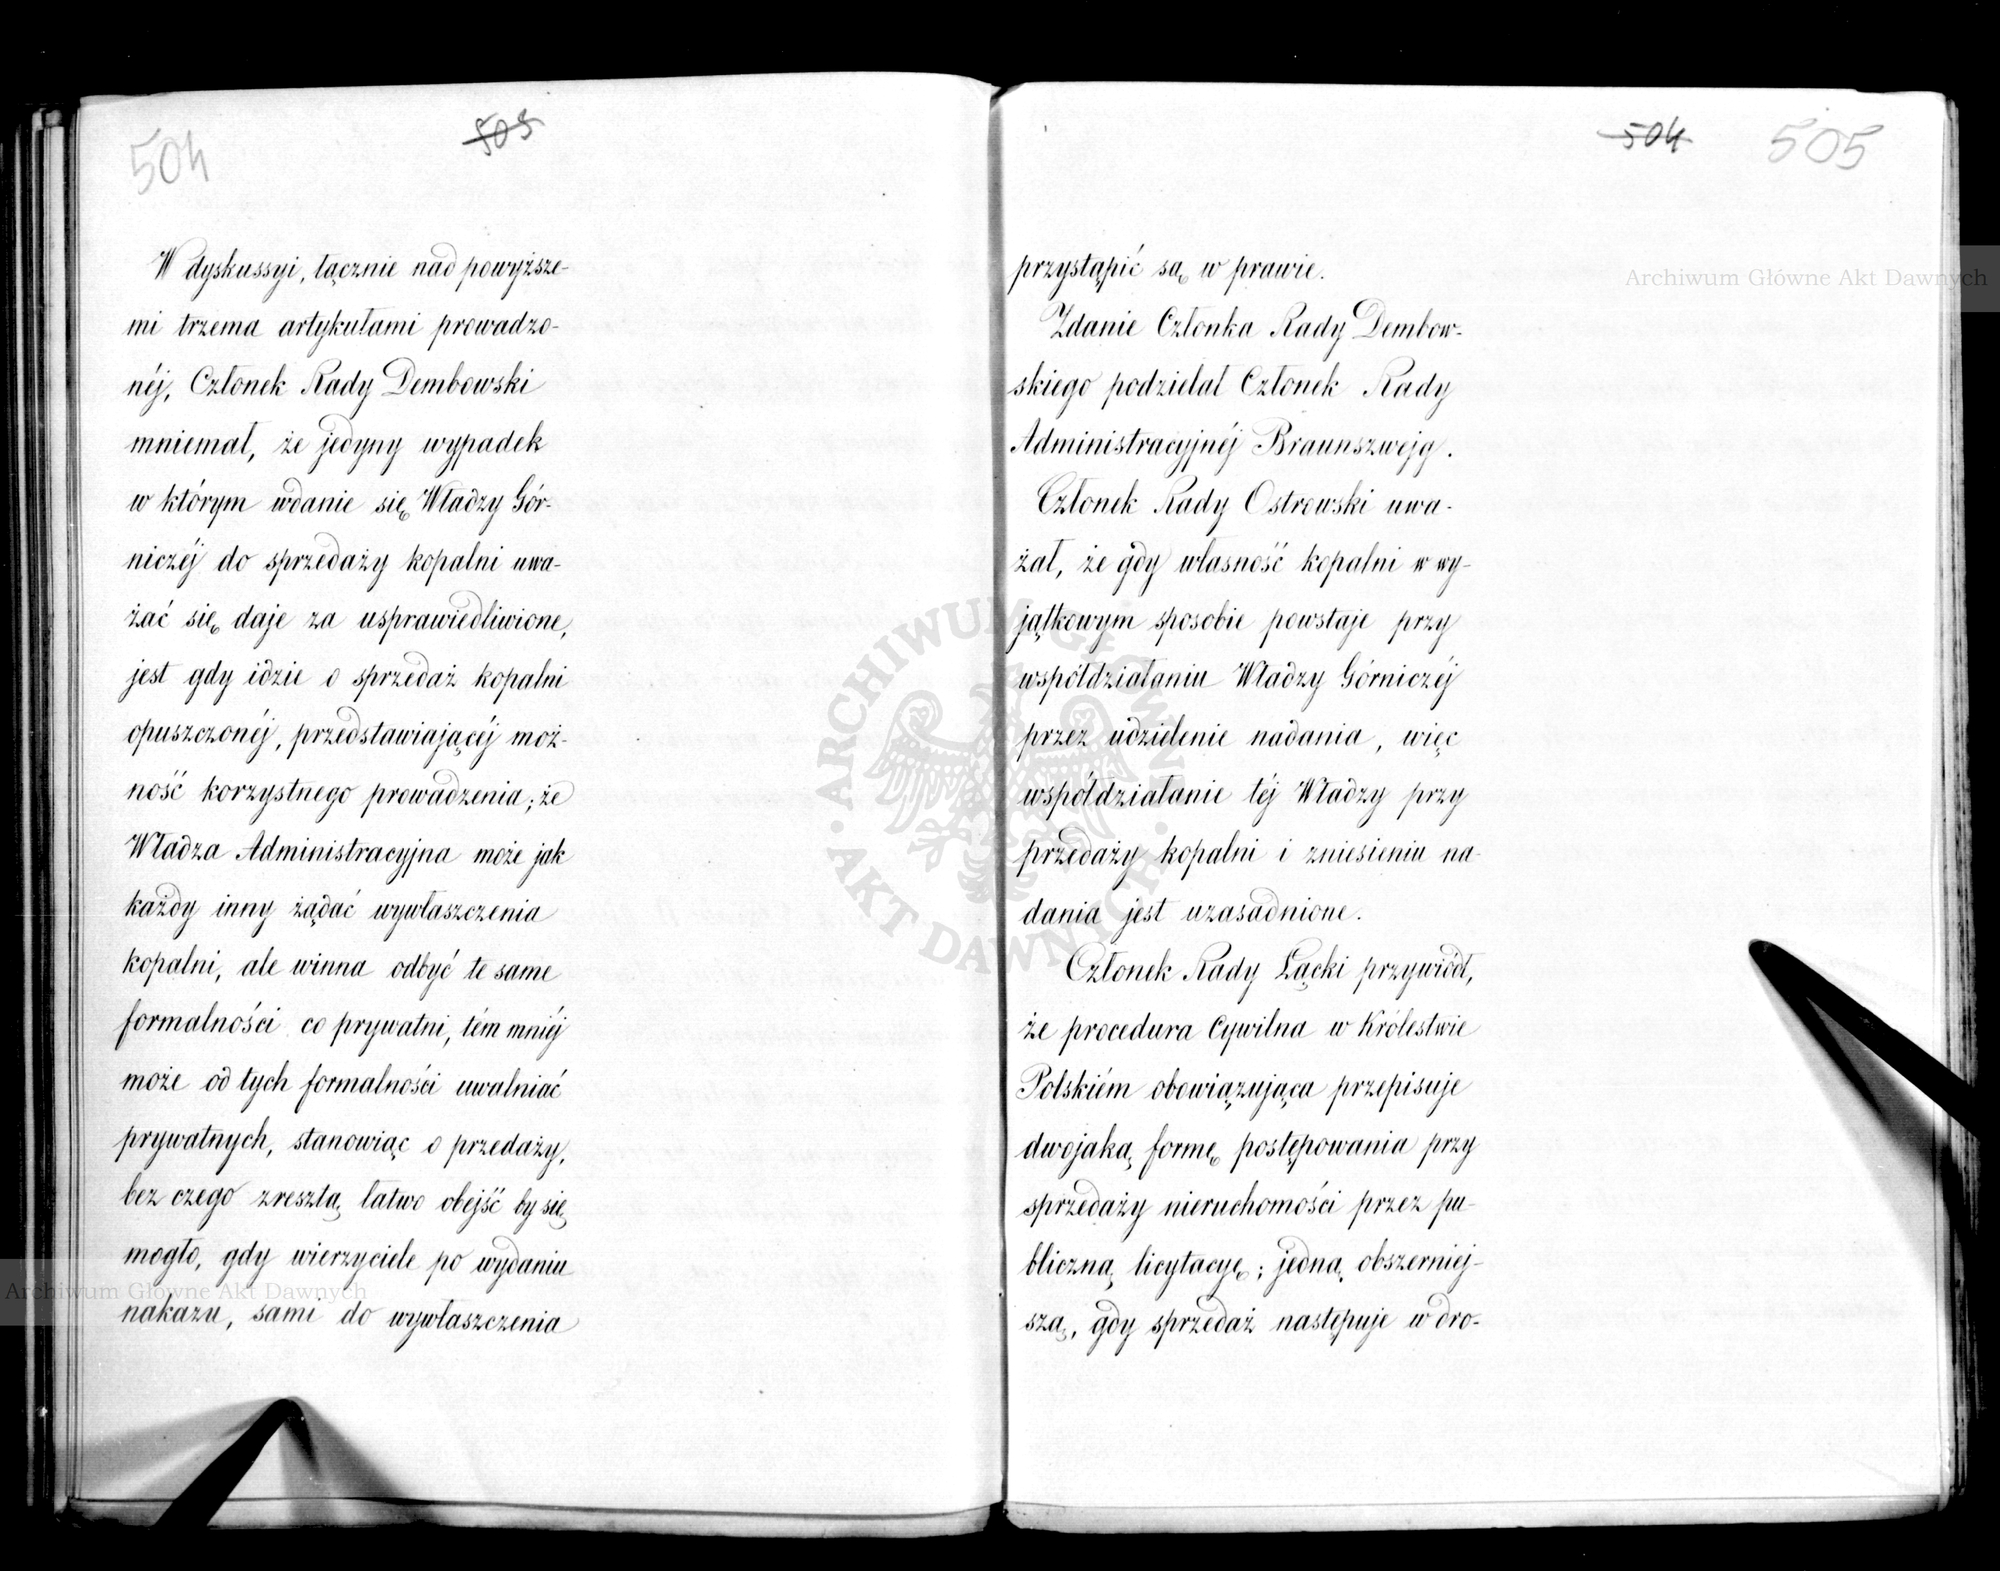 504
503
W dyskussyi, łącznie nad powyższe-
mi trzema artykułami prowadzo-
néj, Członek Rady Dembowski
mniemał, że jedyny wypadek
w którym wdanie się Władzy Gór-
niczéj do sprzedaży kopalni uwa-
żać się daje za usprawiedliwione,
jest gdy idzie o sprzedaż kopalni
opuszczonéj, przedstawiającéj moż-
ność korzystnego prowadzenia; że
Władza Administracyjna może jak
każdy inny żądać wywłaszczenia
kopalni, ale winna odbyć te same
formalności co prywatni, tém mniéj
może od tych formalności uwalniać
prywatnych, stanowiąc o przedaży,
bez czego zresztą łatwo obejść by się
mogło, gdy wierzyciele po wydaniu
nakazu, sami do wywłaszczenia
504
505
przystąpić są w prawie.
Zdanie Członka Rady Dembow-
skiego podzielał Członek Rady
Administracyjnéj Braunszwejg.
Członek Rady Ostrowski uwa-
żał, że gdy własność kopalni w wy-
jątkowym sposobie powstaje przy
współdziałaniu Władzy Górniczéj
przez udzielenie nadania, więc
współdziałanie téj Władzy przy
przedaży kopalni i zniesieniu na-
dania jest uzasadnione.
Członek Rady Łącki przywiódł,
że procedura Cywilna w Królestwie
Polskiém obowiązująca przepisuje
dwojaką formę postępowania przy
sprzedaży nieruchomości przez pu-
bliczną licytacyę; jedną obszerniej-
szą, gdy sprzedaż następuje w dro-
Archiwum Główne Akt Dawnych
ARCHIWUM GŁÓWNE AKT DAWNYCH
Archiwum Główne Akt Dawnych